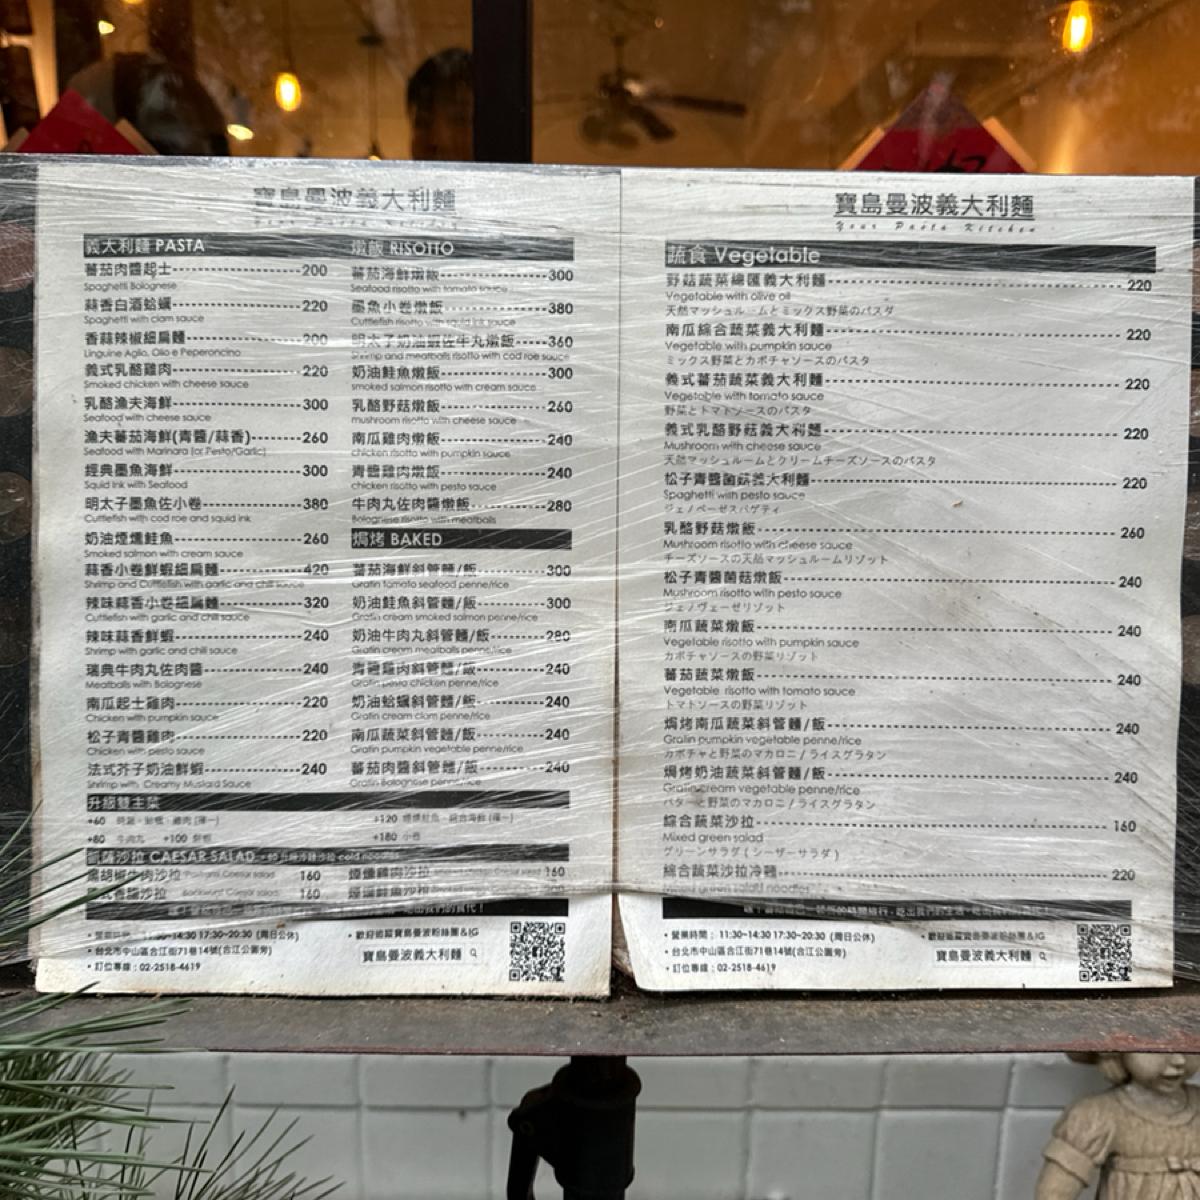 寶島曼波義大利麵
Your Pasta Kitchen
義大利麵 PASTA
蕃茄肉醬起士 200
Spaghetti Bolognese
蒜香白酒蛤蠣 220
Spaghetti with clam sauce
香蒜辣椒細扁麵 200
Linguine Aglio, Olio e Peperoncino
義式乳酪雞肉 220
Smoked chicken with cheese sauce
乳酪漁夫海鮮 300
Seafood with cheese sauce
漁夫蕃茄海鮮(青醬/蒜香) 260
Seafood with Marinara (or Pesto/Garlic)
經典墨魚海鮮 300
Squid Ink with Seafood
明太子墨魚佐小卷 380
Cuttlefish with cod roe and squid ink
奶油煙燻鮭魚 260
Smoked salmon with cream sauce
蒜香小卷鮮蝦細扁麵 420
Shrimp and Cuttlefish with garlic and chili sauce
辣味蒜香小卷細扁麵 320
Cuttlefish with garlic and chili sauce
辣味蒜香鮮蝦 240
Shrimp with garlic and chili sauce
瑞典牛肉丸佐肉醬 240
Meatballs with Bolognese
南瓜起士雞肉 220
Chicken with pumpkin sauce
松子青醬雞肉 220
Chicken with pesto sauce
法式芥子奶油鮮蝦 240
Shrimp with Creamy Mustard Sauce
燉飯 RISOTTO
蕃茄海鮮燉飯 300
Seafood risotto with tomato sauce
墨魚小卷燉飯 380
Cuttlefish risotto with squid ink sauce
明太子奶油蝦佐牛丸燉飯 360
Shrimp and meatballs risotto with cod roe sauce
奶油鮭魚燉飯 300
smoked salmon risotto with cream sauce
乳酪野菇燉飯 260
mushroom risotto with cheese sauce
南瓜雞肉燉飯 240
chicken risotto with pumpkin sauce
青醬雞肉燉飯 240
chicken risotto with pesto sauce
牛肉丸佐肉醬燉飯 280
Bolognese risotto with meatballs
焗烤 BAKED
蕃茄海鮮斜管麵/飯 300
Gratin tomato seafood penne/rice
奶油鮭魚斜管麵/飯 300
Gratin cream smoked salmon penne/rice
奶油牛肉丸斜管麵/飯 280
Gratin cream meatballs penne/rice
青醬雞肉斜管麵/飯 240
Gratin pesto chicken penne/rice
奶油蛤蠣斜管麵/飯 240
Gratin cream clam penne/rice
南瓜蔬菜斜管麵/飯 240
Gratin pumpkin vegetable penne/rice
蕃茄肉醬斜管麵/飯 240
Gratin Bolognese penne/rice
升級雙主菜
+60
+120
+80 牛肉丸 +100
+180 小卷
凱薩沙拉 CAESAR SALAD
黑胡椒牛肉沙拉 Pastrami Caesar salad 160
煙燻雞肉沙拉 160
Caesar salad 160
營業時間： 11:30~14:30 17:30~20:30 (周日公休)
台北市中山區合江街71巷14號(合江公園旁)
訂位專線：02-2518-4619
歡迎追蹤寶島曼波粉絲團&IG
寶島曼波義大利麵
寶島曼波義大利麵
Your Pasta Kitchen
蔬食 Vegetable
野菇蔬菜綿匯義大利麵 220
Vegetable with olive oil
天然マッシュルームとミックス野菜のパスタ
南瓜綜合蔬菜義大利麵 220
Vegetable with pumpkin sauce
ミックス野菜とカボチャソースのパスタ
義式蕃茄蔬菜義大利麵 220
Vegetable with tomato sauce
野菜とトマトソースのパスタ
義式乳酪野菇義大利麵 220
Mushroom with cheese sauce
天然マッシュルームとクリームチーズソースのパスタ
松子青醬菌菇義大利麵 220
Spaghetti with pesto sauce
ジェノベーゼスパゲティ
乳酪野菇燉飯 260
Mushroom risotto with cheese sauce
チーズソースの天然マッシュルームリゾット
松子青醬菌菇燉飯 240
Mushroom risotto with pesto sauce
ジェノヴェーゼリゾット
南瓜蔬菜燉飯 240
Vegetable risotto with pumpkin sauce
カボチャソースの野菜リゾット
蕃茄蔬菜燉飯 240
Vegetable risotto with tomato sauce
トマトソースの野菜リゾット
焗烤南瓜蔬菜斜管麵/飯 240
Gratin pumpkin vegetable penne/rice
カボチャと野菜のマカロニ / ライスグラタン
焗烤奶油蔬菜斜管麵/飯 240
Gratin cream vegetable penne/rice
バターと野菜のマカロニ / ライスグラタン
綜合蔬菜沙拉 160
Mixed green salad
グリーンサラダ ( シーザーサラダ )
綜合蔬菜沙拉冷麵 220
Mixed green salad noodles
營業時間： 11:30~14:30 17:30~20:30 (周日公休)
台北市中山區合江街71巷14號(合江公園旁)
訂位專線：02-2518-4619
歡迎追蹤寶島曼波粉絲團&IG
寶島曼波義大利麵